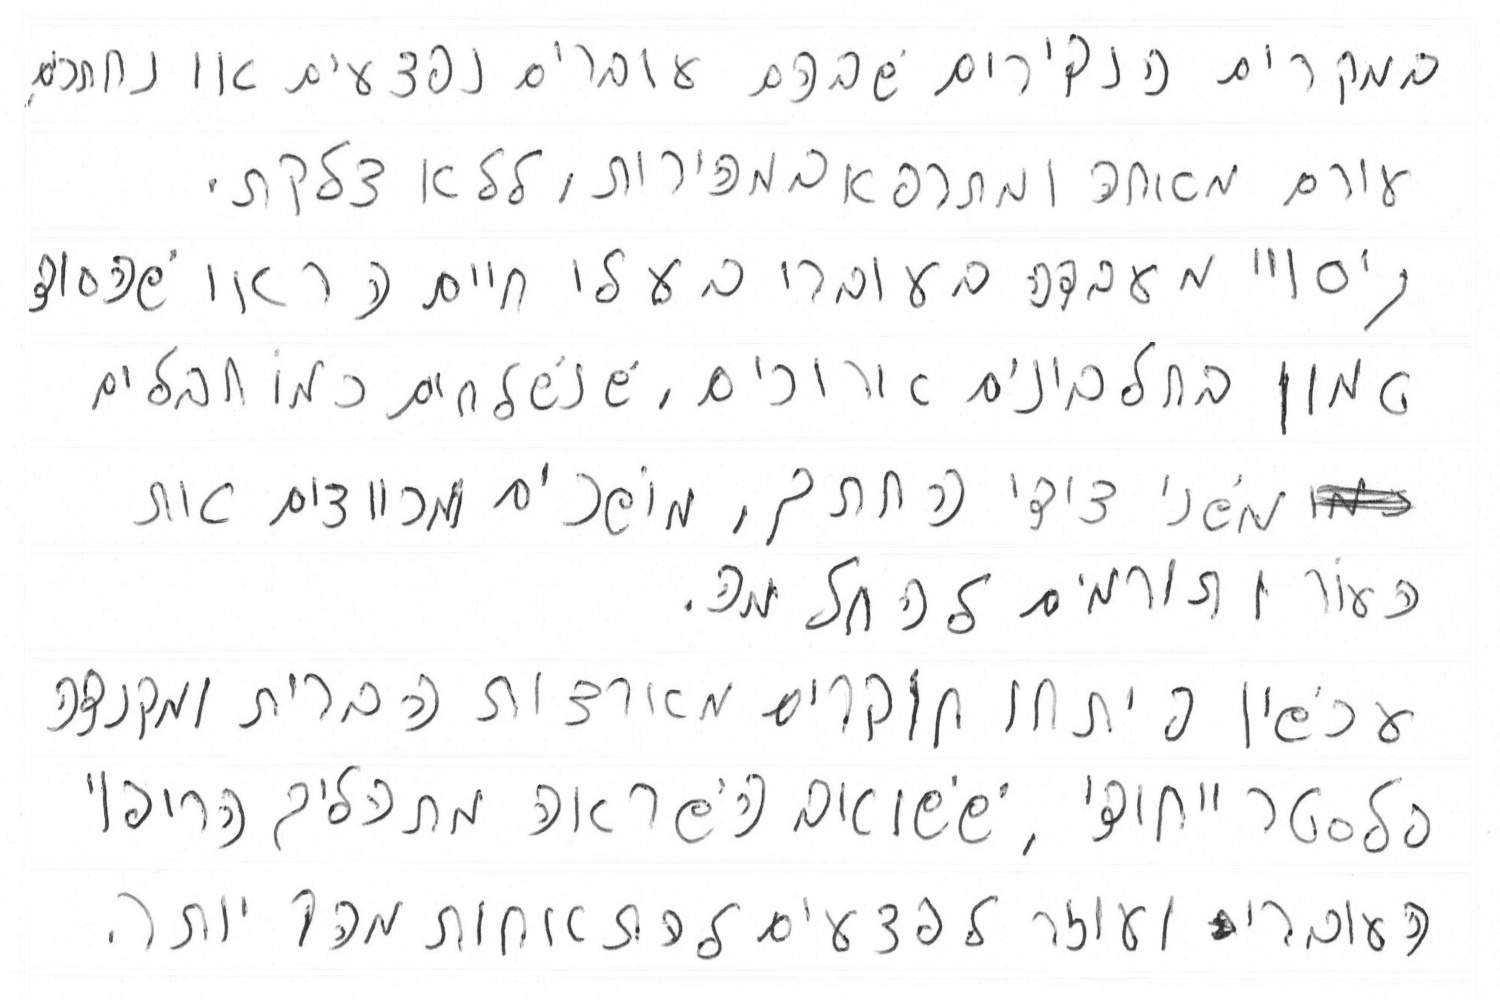 במקרים הנדירים שבהם עוברים נפצעים או נחתכים
עורם מאוחה ומתרפא במהירות, ללא צלקת.
ניסויי מעבדה בעוברי בעלי חיים הראו שהסוד
טמון בחלבונים ארוכים, שנשלחים כמו חבלים
משני צידי החתך, מושכים ומכווצים את
העור ותורמים להחלמה.
עכשיו פיתחו חוקרים מארצות הברית ומקנדה
פלסטר ייחודי, ששואב השראה מתהליך הריפוי
העוברי ועוזר לפצעים להתאחות מהר יותר.